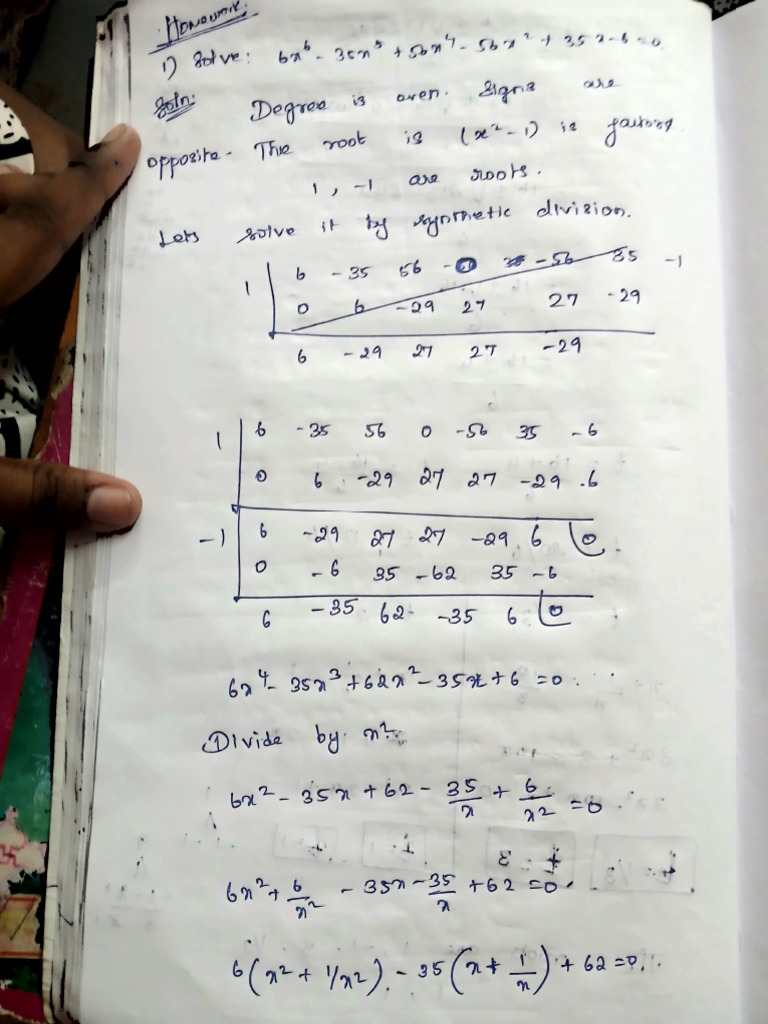 Homework.
1) Solve: 6x⁶ - 35x⁵ + 56x⁴ - 56x² + 35x - 6 = 0
Soln: Degree is even. Signs are
opposite. The root is (x² - 1) is factors
1, -1 are roots.
Lets solve it by synthetic division.
1 | 6 -35 56 -0 -56 35 -1
0 6 -29 27 27 -29
6 -29 27 27 -29
1 | 6 -35 56 0 -56 35 -6
0 6 -29 27 27 -29 6
-1 | 6 -29 27 27 -29 6 | 0
0 -6 35 -62 35 -6
6 -35 62 -35 6 | 0
6x⁴ - 35x³ + 62x² - 35x + 6 = 0
Divide by x².
6x² - 35x + 62 - 35/x + 6/x² = 0
6x² + 6/x² - 35x - 35/x + 62 = 0.
6(x² + 1/x²) - 35(x + 1/x) + 62 = 0.